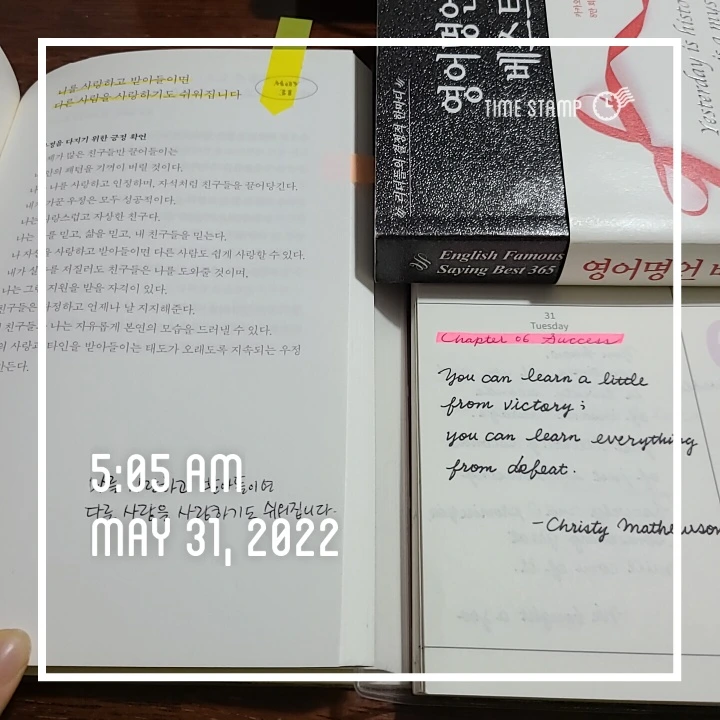 나를 사랑하고 받아들이면
다른 사람을 사랑하기도 쉬워집니다
31
우정을 다지기 위한 긍정 확언
내가 많은 친구들만 끌어들이는
패턴을 기꺼이 버릴 것이다.
나는 나를 사랑하고 인정하며, 자석처럼 친구들을 끌어당긴다.
가꾼 우정은 모두 성공적이다.
나는 사랑스럽고 자상한 친구다.
나는 나를 믿고, 삶을 믿고, 내 친구들을 믿는다.
나 자신을 사랑하고 받아들이면 다른 사람도 쉽게 사랑할 수 있다.
네가 실수를 저질러도 친구들은 나를 도와줄 것이며,
나는 그런 지원을 받을 자격이 있다.
친구들은 다정하고 언제나 날 지지해준다.
친구들과 나는 자유롭게 본인의 모습을 드러낼 수 있다.
사랑과 타인을 받아들이는 태도가 오래도록 지속되는 우정
만든다.
나를 사랑하고 받아들이면
다른 사람을 사랑하기도 쉬워집니다.
5:05 AM
MAY 31, 2022
영어명언
베스트
리더들의 결정적 한마디
English Famous
Saying Best 365
영어명언
TIME STAMP
Yesterday is histo
31
Tuesday
Chapter 06 Success
You can learn a little
from victory;
you can learn everything
from defeat.
-Christy Mathewson